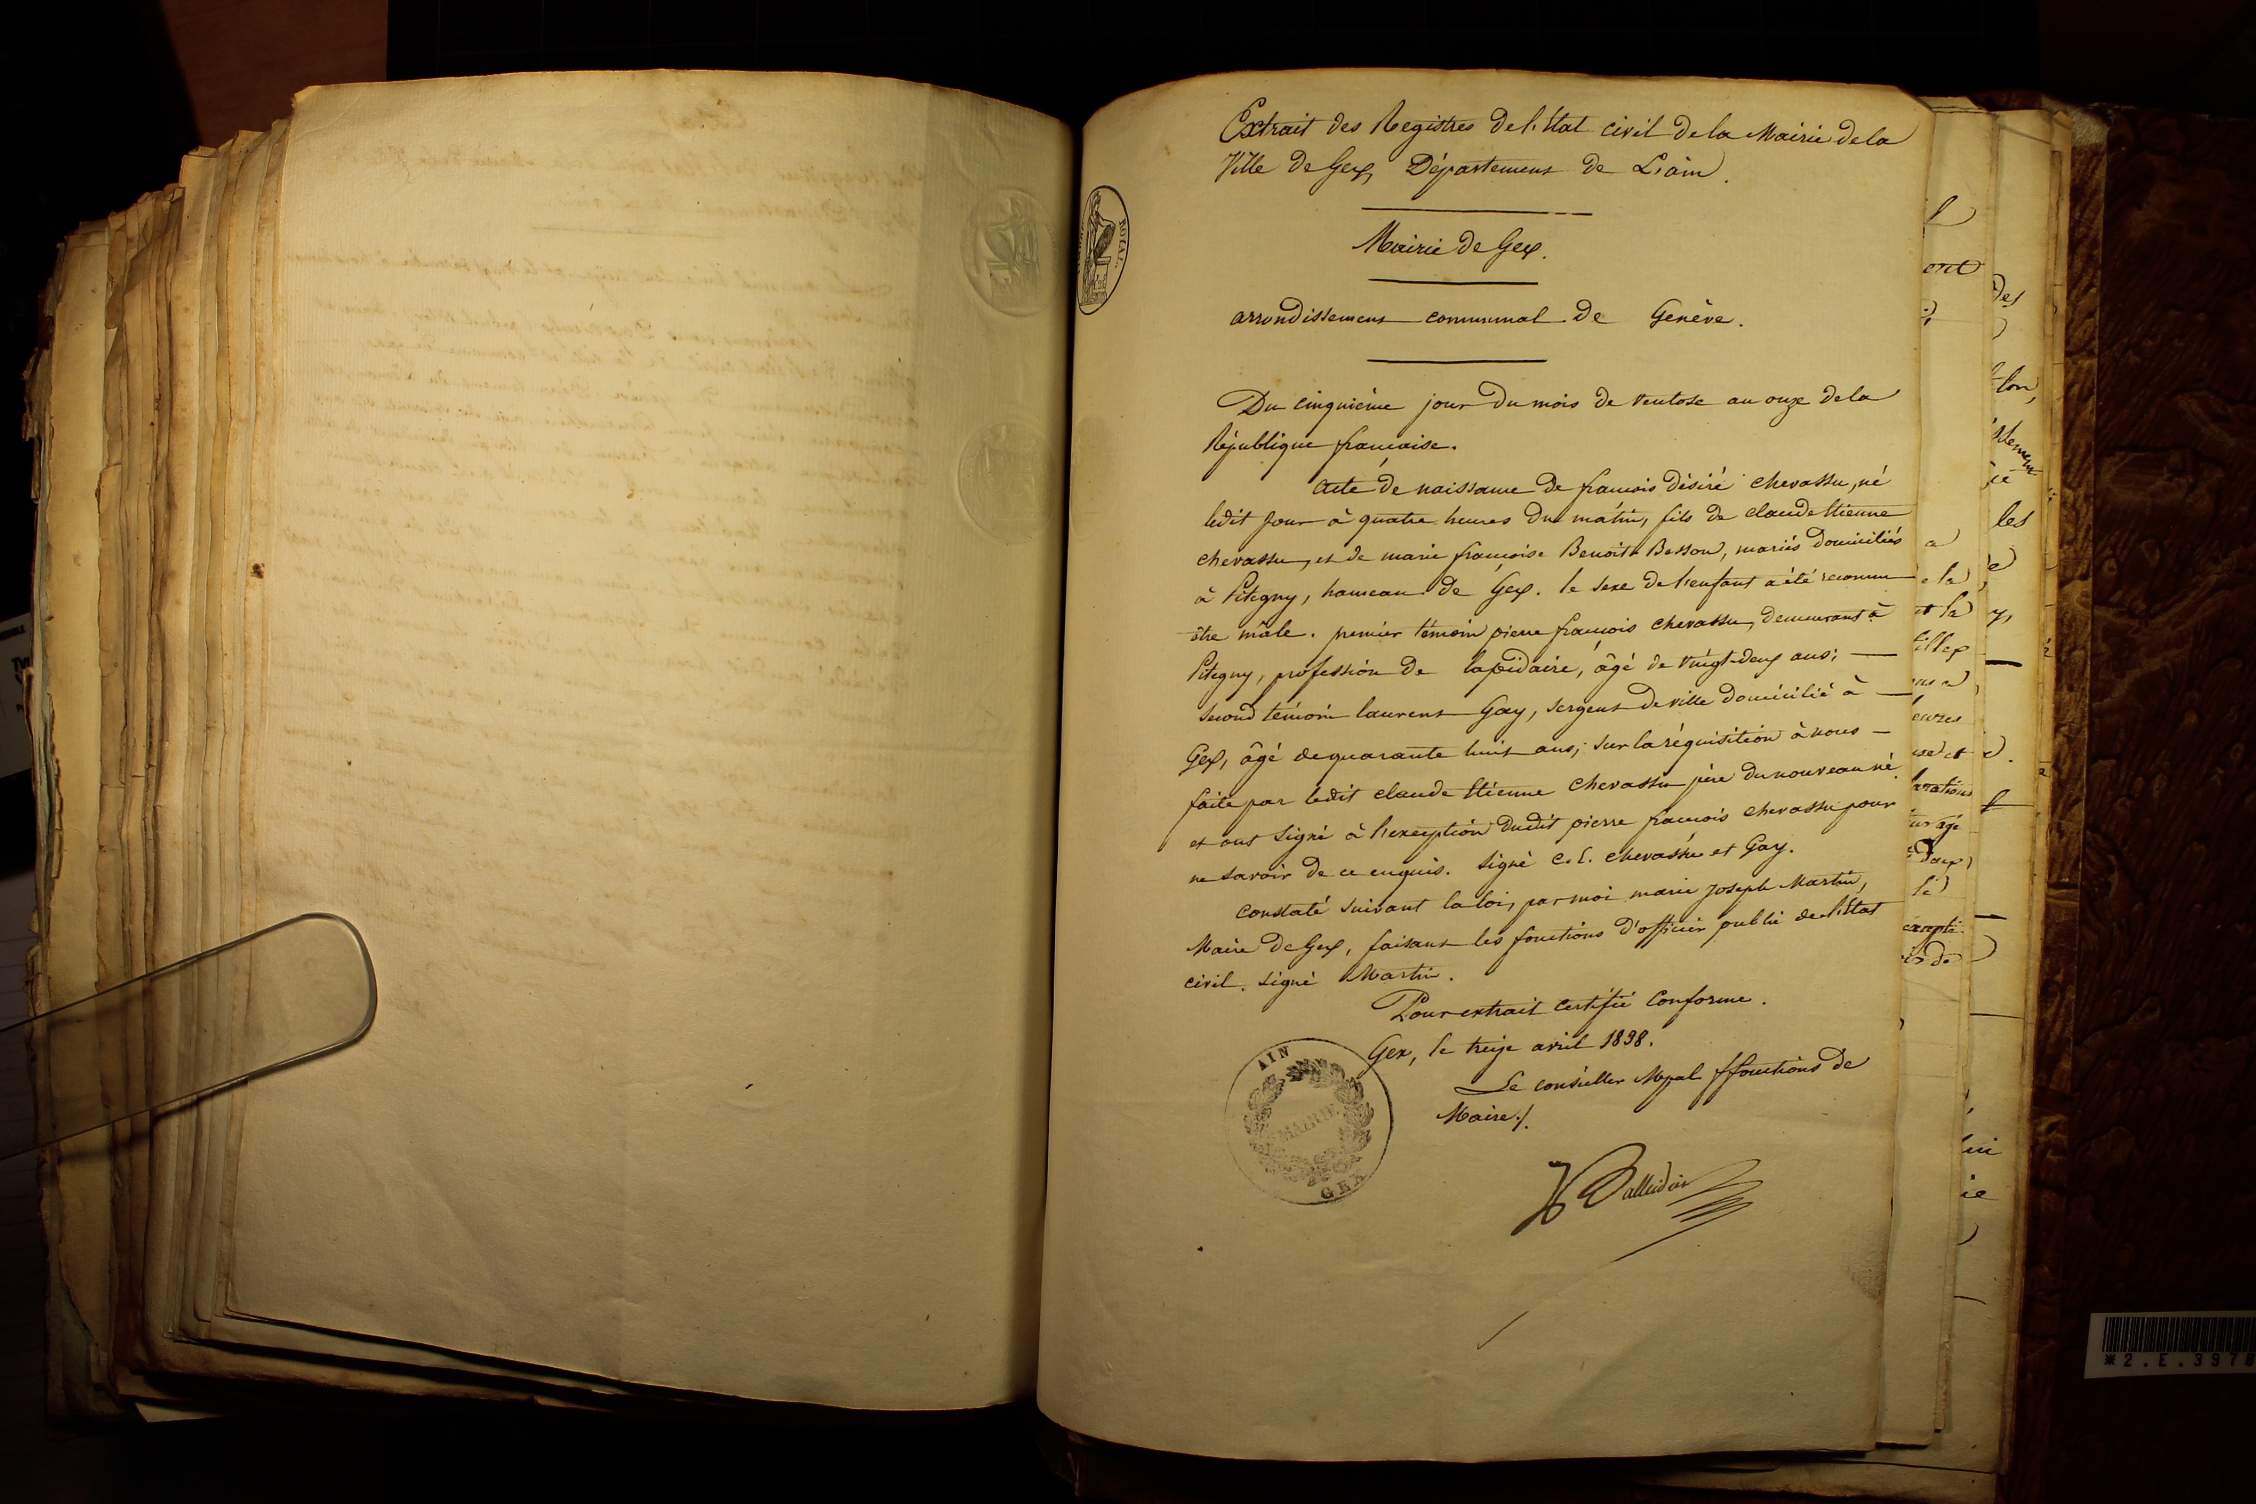 Extrait des Registres de l'Etat civil de la Mairie de la
Ville de Gex, Département de L'ain.
Mairie de Gex.
ROYAL
arrondissement communal de Genève.
Du cinquième jour du mois de ventose an onze de la
République française.
acte de naissance de françois désiré chevassu, né
ledit jour à quatre heures du matin, fils de claude Etienne
chevassu, et de marie françoise Benoite Besson, mariés domiciliés
à Pitegny, hameau de Gex. le sexe de l'enfant a été reconnu
être mâle. premier témoin pierre françois chevassu, demeurant à
Pitegny, profession de lapidaire, âgé de vingt-deux ans;
second témoin laurent Gay, sergent de ville domicilié à
Gex, âgé de quarante huit ans; sur la réquisition à nous
faite par ledit claude Etienne chevassu père du nouveau né
et ont signé à l'exception dudit pierre françois chevassu pour
ne savoir de ce enquis. signé C. E. chevassu et Gay.
constaté suivant la loi, par moi marie joseph Martin,
Maire de Gex, faisant les fonctions d'officier public de l'Etat
civil. signé Martin.
Pour extrait certifié Conforme.
Gex, le treize avril 1838.
Le conseiller Mpal ffonctions de
Maire./.
AIN
MAIRIE
GEX
*2.E.3978